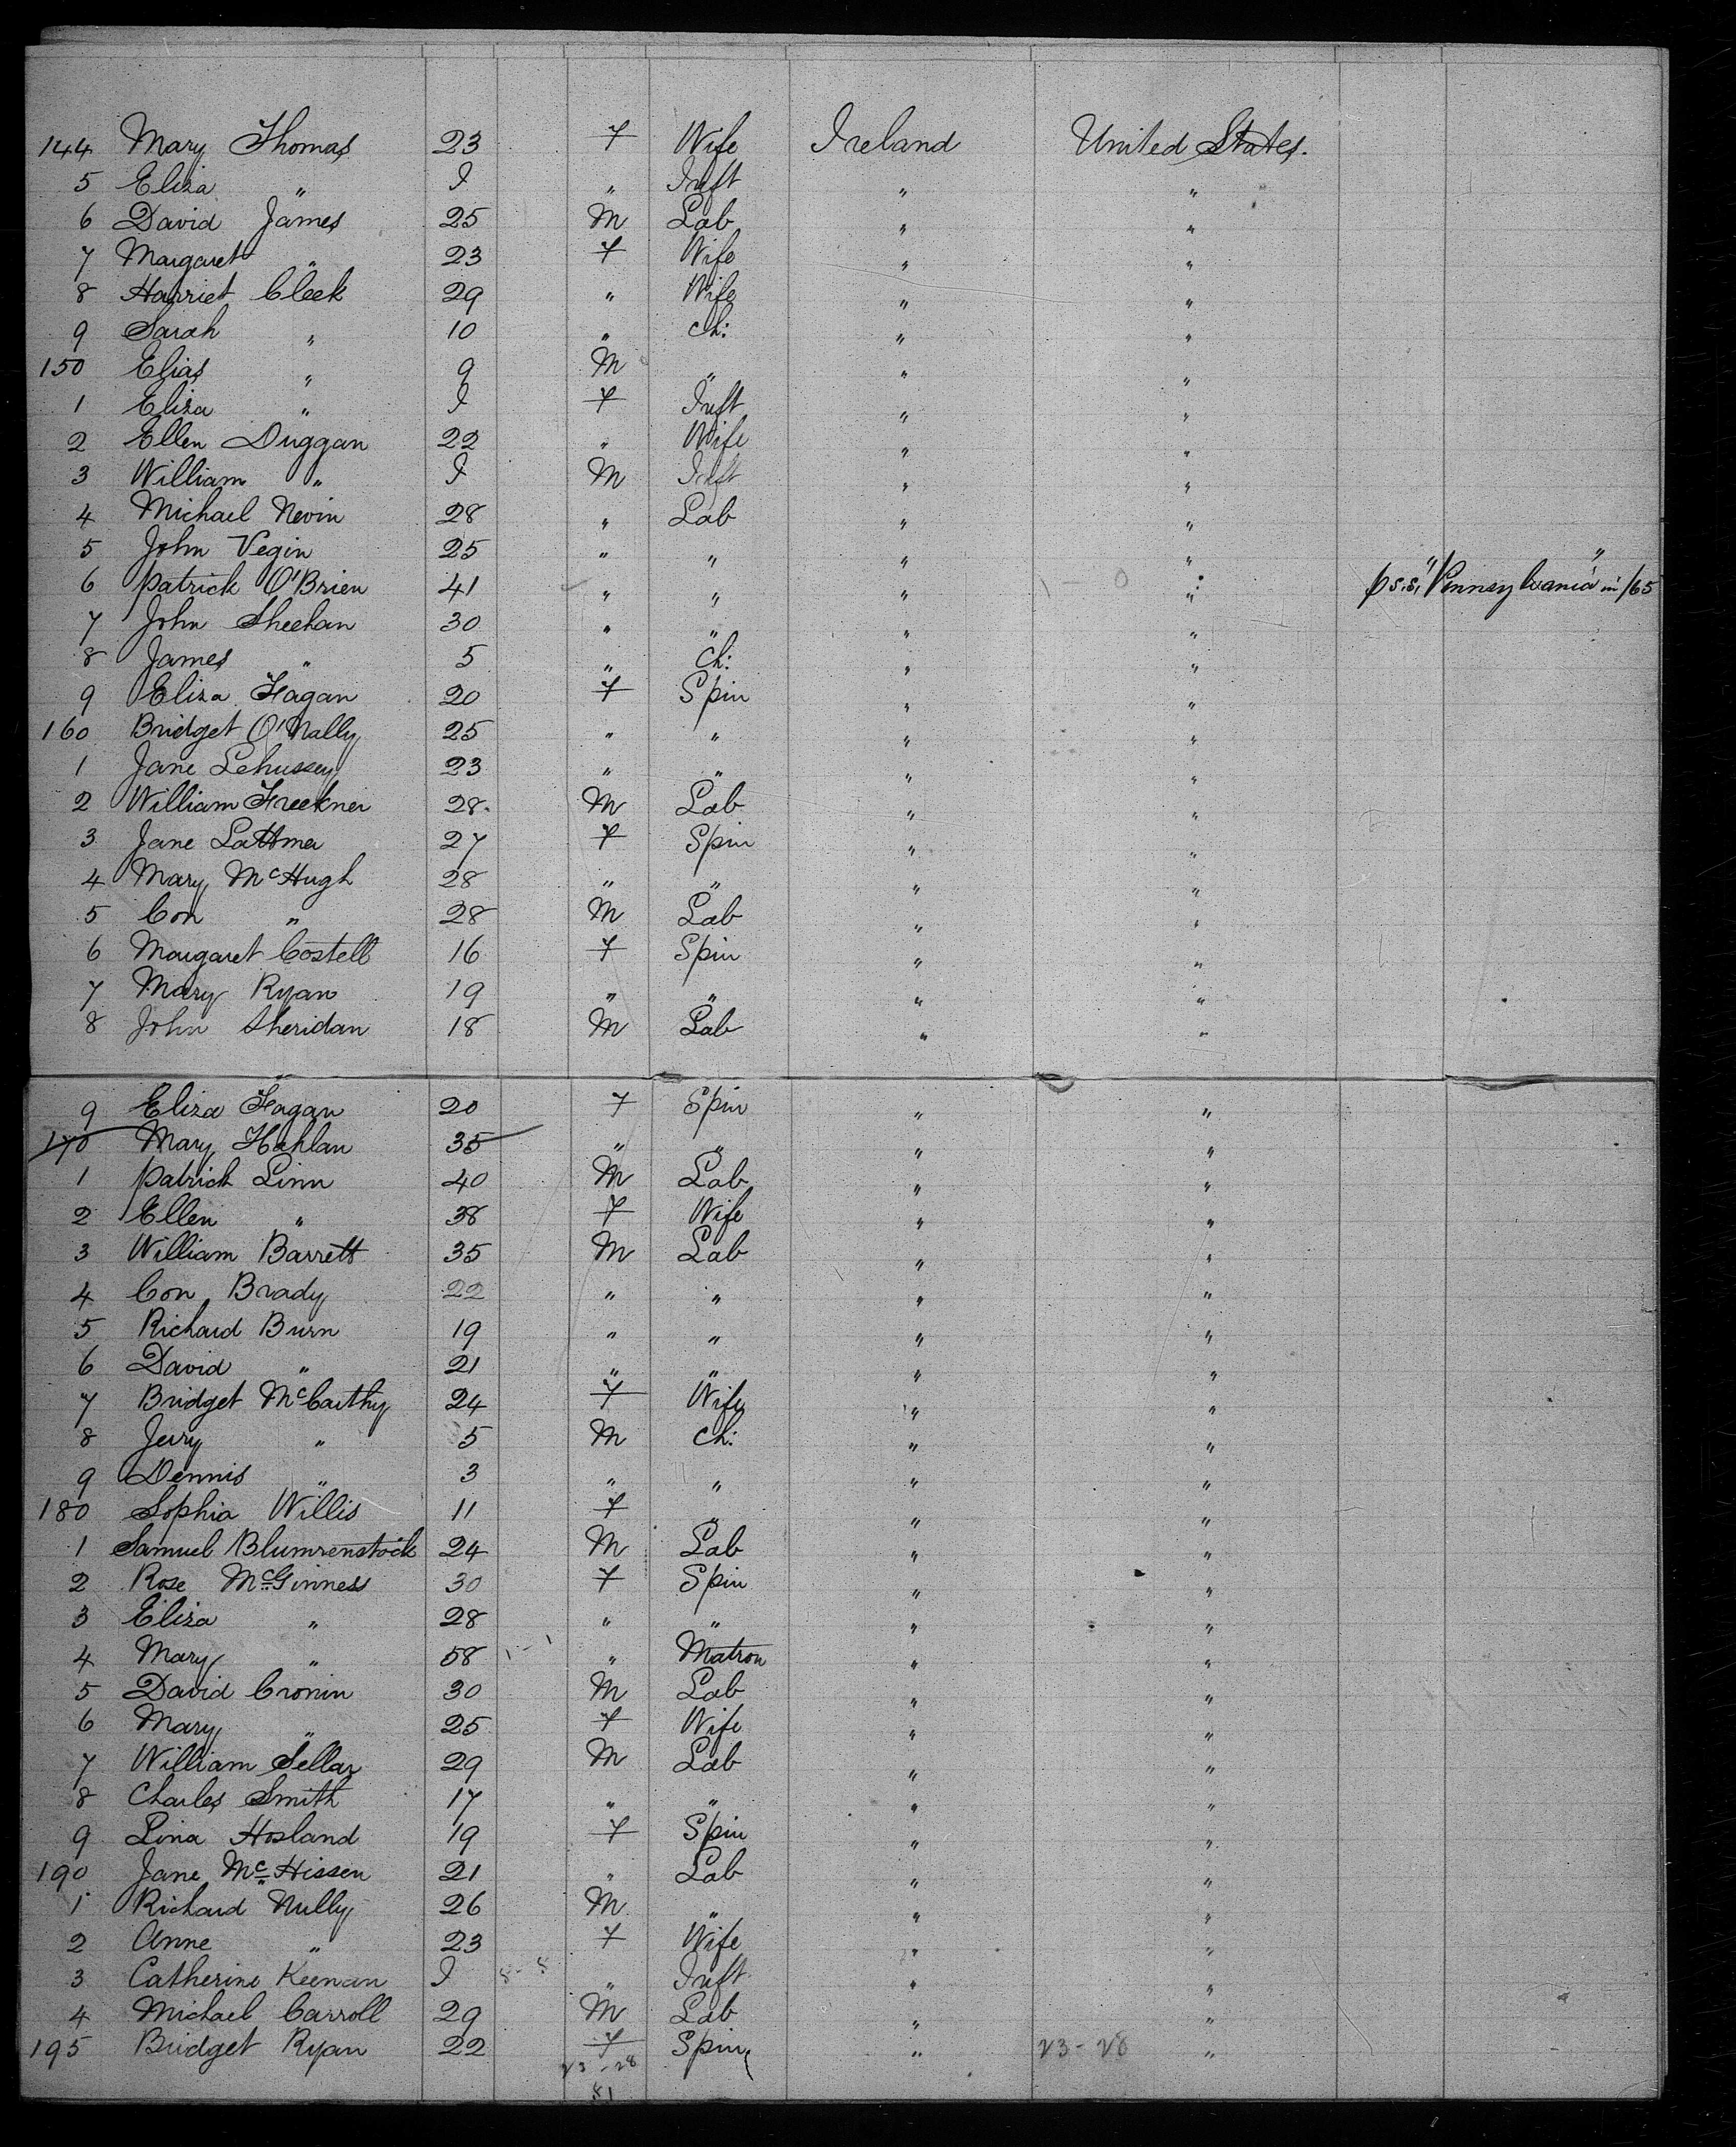 144 Mary Thomas 23 F Wife Ireland United States.
5 Eliza " I " Inft " "
6 David James 25 M Lab " "
7 Margaret " 23 F Wife " "
8 Harriet Cleek 29 " Wife " "
9 Sarah " 10 " Ch: " "
150 Elias " 9 M " " "
1 Eliza " I F Inft " "
2 Ellen Duggan 22 " Wife " "
3 William " I M Inft " "
4 Michael Nevin 28 " Lab " "
5 John Vegin 25 " " " "
6 Patrick O'Brien 41 " " " " p s.s. "Pennsylvania" in /65
7 John Sheehan 30 " " " "
8 James " 5 " Ch: " "
9 Eliza Fagan 20 F Spin " "
160 Bridget O'Nally 25 " " " "
1 Jane Lehussey 23 " " " "
2 William Freekner 28 M Lab " "
3 Jane Lattma 27 F Spin " "
4 Mary McHugh 28 " " " "
5 Con " 28 M Lab " "
6 Margaret Costell 16 F Spin " "
7 Mary Ryan 19 " " " "
8 John Sheridan 18 M Lab " "
9 Eliza Fagan 20 F Spin " "
170 Mary Hahlan 35 " " " "
1 Patrick Linn 40 M Lab " "
2 Ellen " 38 F Wife " "
3 William Barrett 35 M Lab " "
4 Con Brady 22 " " " "
5 Richard Burn 19 " " " "
6 David " 21 " " " "
7 Bridget McCarthy 24 F Wife " "
8 Jerry " 5 M Ch: " "
9 Dennis " 3 " " " "
180 Sophia Willis 11 F " " "
1 Samuel Blumrenstock 24 M Lab " "
2 Rose McGinness 30 F Spin " "
3 Eliza " 28 " " " "
4 Mary " 58 " Matron " "
5 David Cronin 30 M Lab " "
6 Mary " 25 F Wife " "
7 William Sellaz 29 M Lab " "
8 Charles Smith 17 " " " "
9 Lina Hosland 19 F Spin " "
190 Jane McHissen 21 " Lab " "
1 Richard Nully 26 M " " "
2 Anne " 23 F Wife " "
3 Catherine Keenan I 8-8 " Inft " "
4 Michael Carroll 29 M Lab " "
195 Bridget Ryan 22 F Spin " 23-28 "
23-28
51